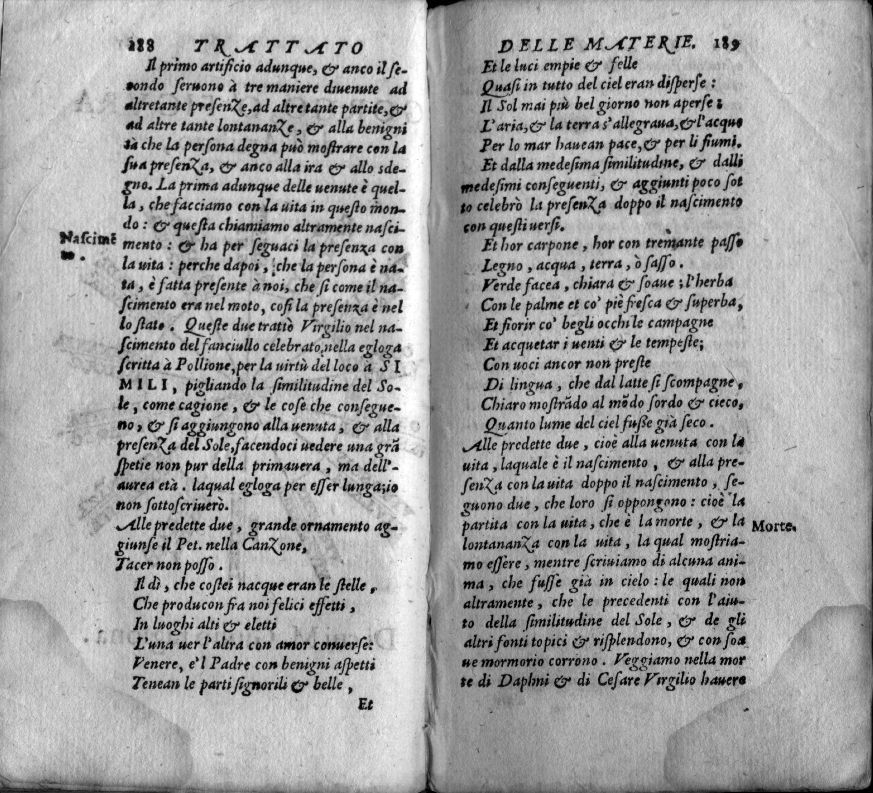 288 TRATTATO
Il primo artificio adunque, & anco il se-
condo seruono à tre maniere diuenute ad
altretante presenze, ad altretante partite, &
ad altre tante lontananze, & alla benigni
tà che la persona degna può mostrare con la
sua presenza, & anco alla ira & allo sde-
gno. La prima adunque delle uenute è quel-
la, che facciamo con la uita in questo mon-
do: & questa chiamiamo altramente nasci-
Nascimē
to.
mento: & ha per seguaci la presenza con
la uita: perche dapoi, che la persona è na-
ta, è fatta presente à noi, che si come il na-
scimento era nel moto, cosi la presenza è nel
lo stato. Queste due trattò Virgilio nel na-
scimento del fanciullo celebrato nella egloga
scritta à Pollione, per la uirtù del loco à SI
MILI, pigliando la similitudine del So-
le, come cagione, & le cose che consegue-
no, & si aggiungono alla uenuta, & alla
presenza del Sole, facendoci uedere una grā
spetie non pur della primauera, ma dell'-
aurea età. laqual egloga per esser lunga, io
non sottoscriuerò.
Alle predette due, grande ornamento ag-
giunse il Pet. nella Canzone,
Tacer non posso.
Il dì, che costei nacque eran le stelle,
Che producon fra noi felici effetti,
In luoghi alti & eletti
L'una uer l'altra con amor conuerse:
Venere, e'l Padre con benigni aspetti
Tenean le parti signorili & belle,
Et
DELLE MATERIE. 189
Et le luci empie & felle
Quasi in tutto del ciel eran disperse:
Il Sol mai più bel giorno non aperse:
L'aria, & la terra s'allegraua, & l'acque
Per lo mar hauean pace, & per li fiumi.
Et dalla medesima similitudine, & dalli
medesimi conseguenti, & aggiunti poco sot
to celebrò la presenza doppo il nascimento
con questi uersi.
Et hor carpone, hor con tremante passo
Legno, acqua, terra, ò sasso.
Verde facea, chiara & soaue; l'herba
Con le palme et co' piè fresca & superba,
Et fiorir co' begli occhi le campagne
Et acquetar i uenti & le tempeste;
Con uoci ancor non preste
Di lingua, che dal latte si scompagne,
Chiaro mostrādo al mōdo sordo & cieco,
Quanto lume del ciel fusse già seco.
Alle predette due, cioè alla uenuta con la
uita, laquale è il nascimento, & alla pre-
senza con la uita doppo il nascimento, se-
guono due, che loro si oppongono: cioè la
partita con la uita, che è la morte, & la
Morte.
lontananza con la uita, la qual mostria-
mo essere, mentre scriuiamo di alcuna ani-
ma, che fusse già in cielo: le quali non
altramente, che le precedenti con l'aiu-
to della similitudine del Sole, & de gli
altri fonti topici & risplendono, & con soa
ue mormorio corrono. Veggiamo nella mor
te di Daphni & di Cesare Virgilio hauere